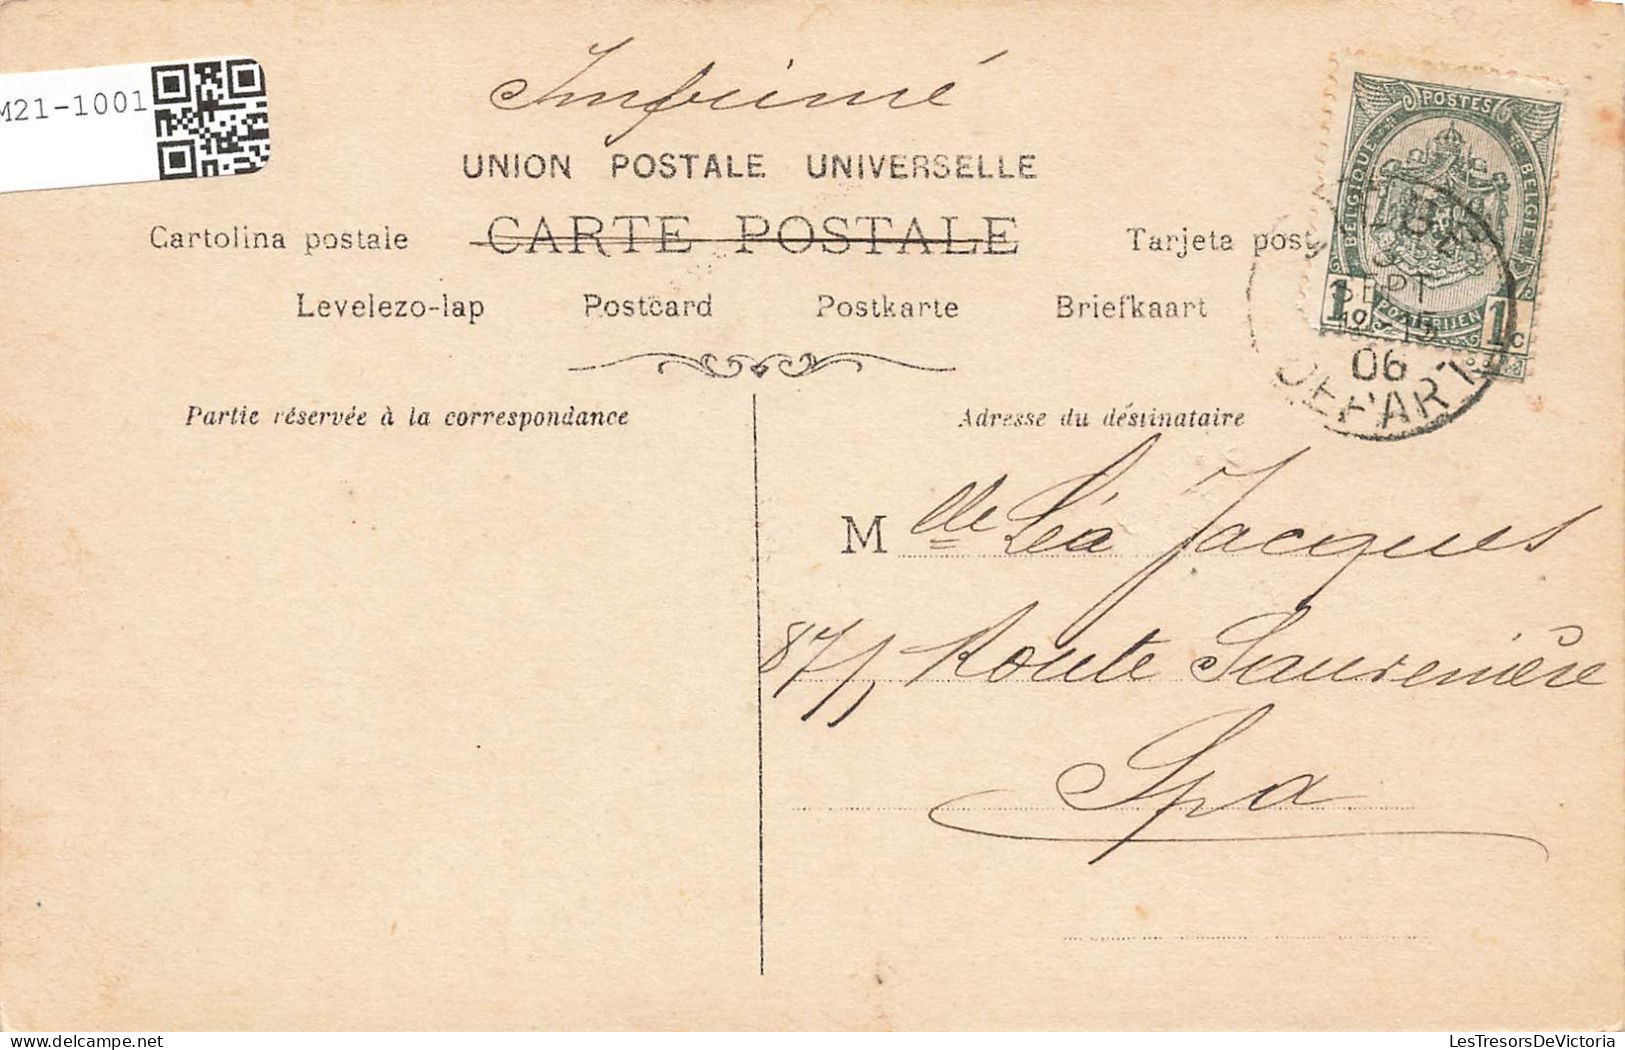 M21-1001
Imprimé
UNION POSTALE UNIVERSELLE
Cartolina postale CARTE POSTALE Tarjeta post
Levelezo-lap Postcard Postkarte Briefkaart
POSTES
BELGIQUE BELGIE
POSTERIJEN
1 1c
SEPT
06
DEPART
Partie réservée à la correspondance
Adresse du destinataire
Mlle Léa Jacques
87, Route Sauvenière
Spa
LesTresorsDeVictoria